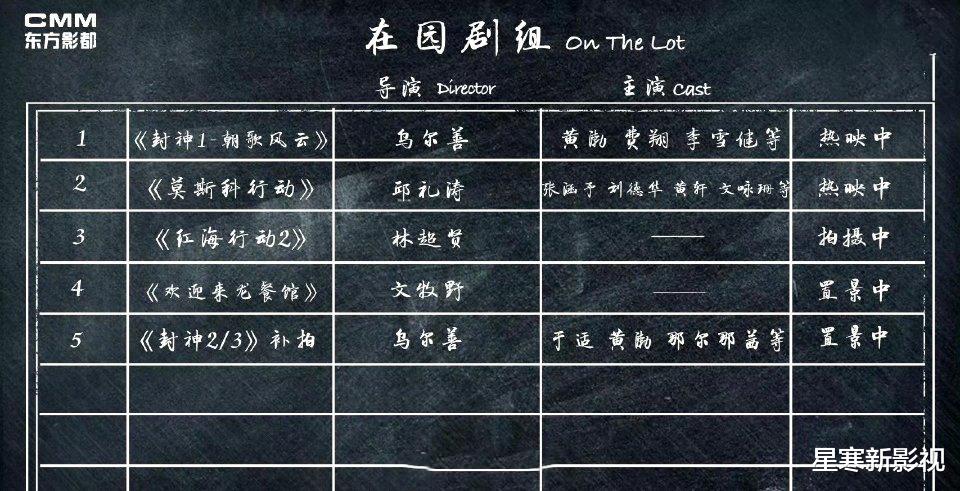 CMM
东方影都
在园剧组 On The Lot
导演 Director 主演 Cast
1 《封神1-朝歌风云》 乌尔善 黄渤 费翔 李雪健等 热映中
2 《莫斯科行动》 邱礼涛 张涵予 刘德华 黄轩 文咏珊等 热映中
3 《红海行动2》 林超贤 —— 拍摄中
4 《欢迎来龙餐馆》 文牧野 —— 置景中
5 《封神2/3》补拍 乌尔善 于适 黄渤 那尔那茜等 置景中
星寒新影视